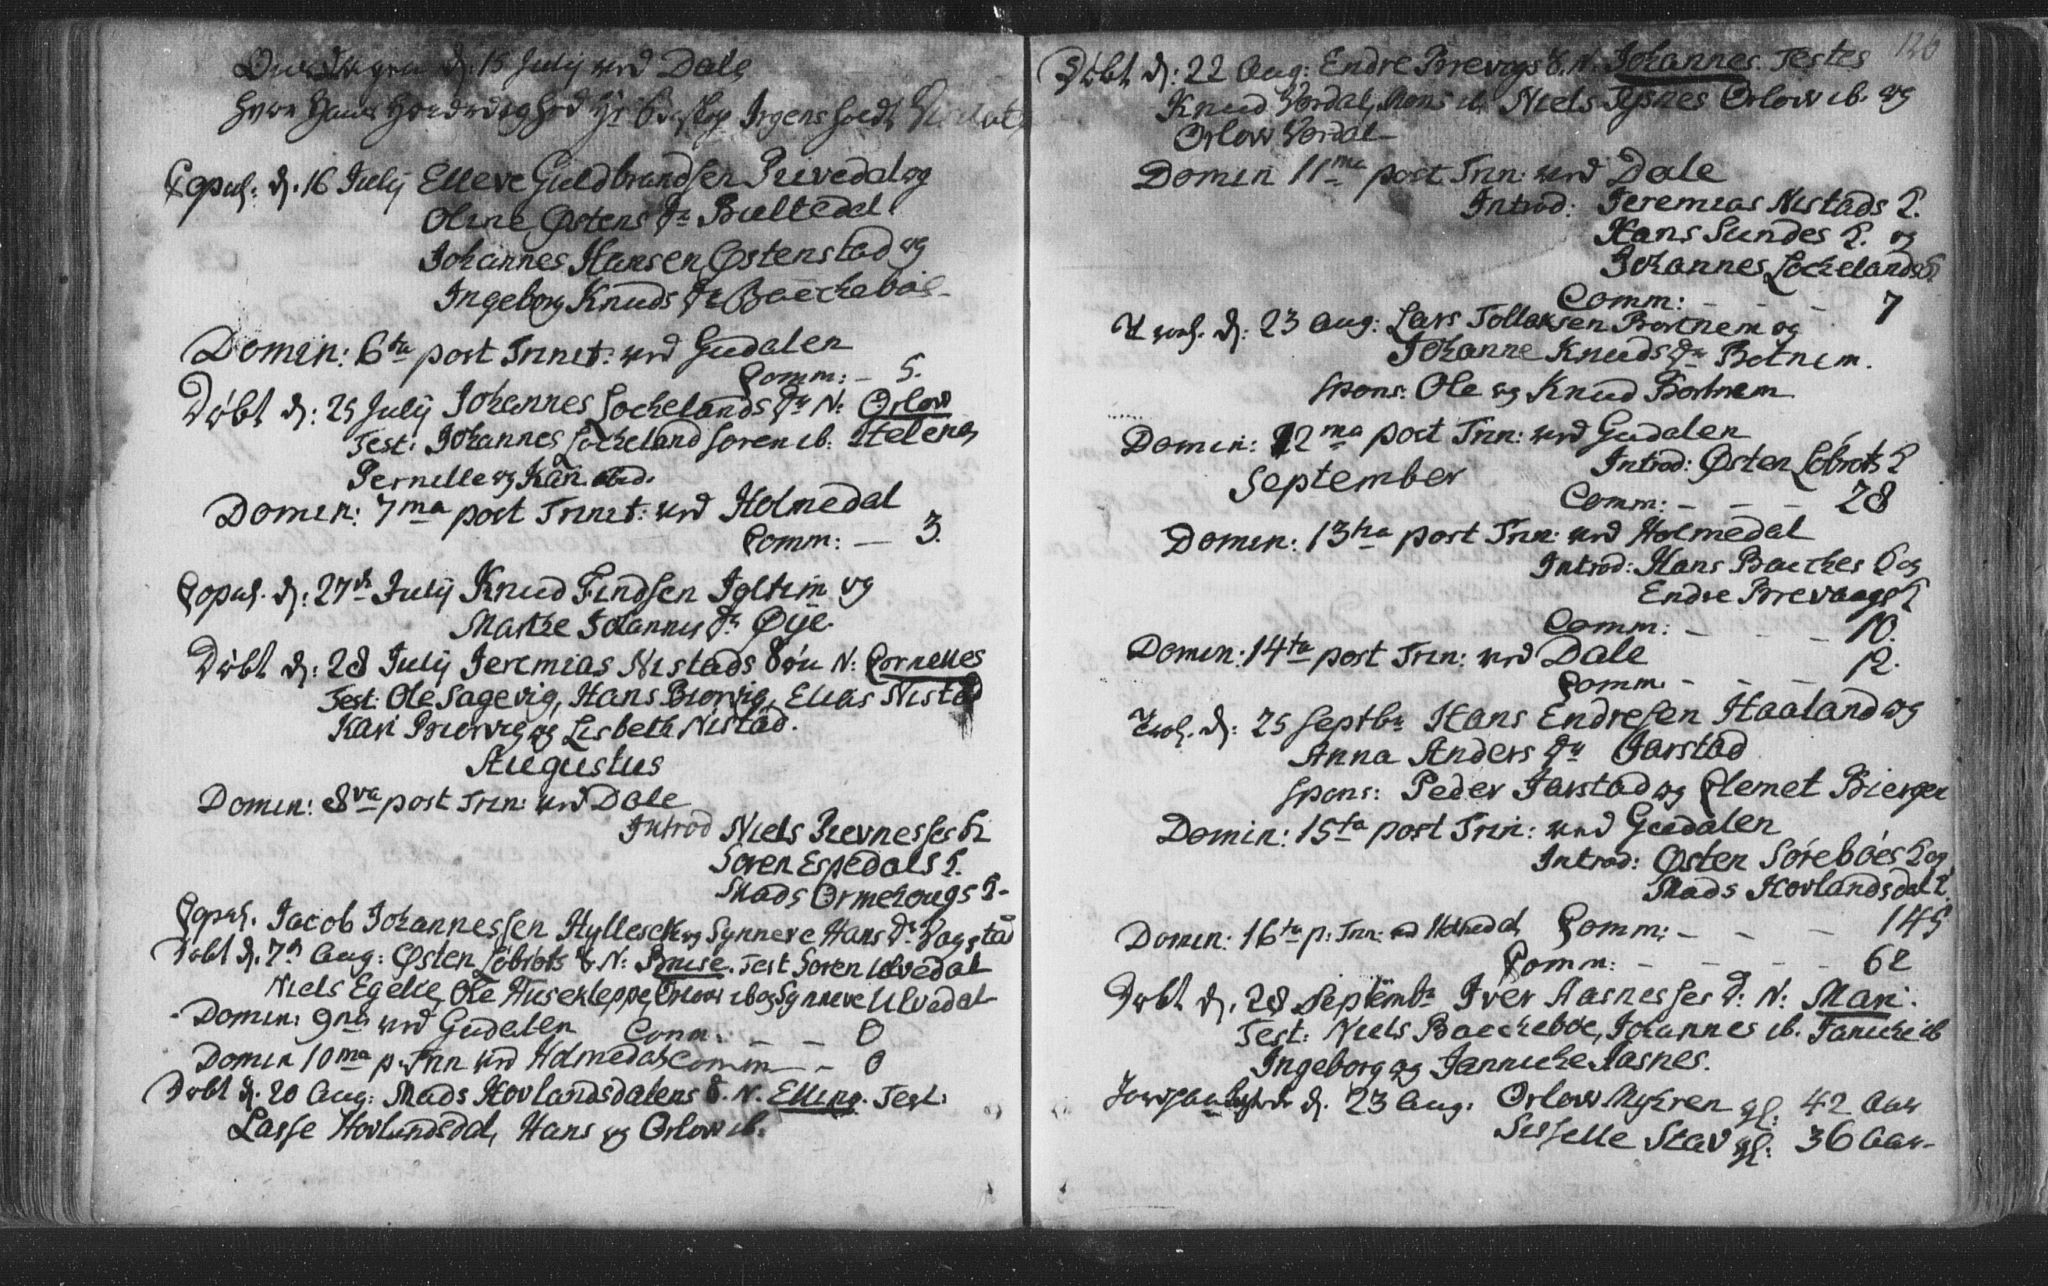 Onsdagen d. 15 Julij ved Dale
hvor Hans Höyærværdighed Hr Biskop Irgens holdt Visitatz
Copul: d. 16 Julij Elleve Guldbrandsen Rivedal og
Oline Østens Dr Bultedal
Johannes Hansen Østenstad og
Ingeborg Knuds Dr Baeckeböe
Domin: 6ta post Trinit: ved Gudalen
Comm: – 5.
Döbt d: 25 Julij Johannes Lockelands Dr N: Orlow
Test: Johannes Lockeland Soren ib: Helene
Pernille og Kari ibid.
Domin: 7ma post Trinit: ved Holmedal
Comm: — 3.
Copul. d: 27de Julij Knud Findsen Igltim og
Marthe Johannes Dr Øije.
Döbt d: 28 Julij Jeremias Nistads Sön N: Cornelles
Test: Ole Sagevig, Hans Biorvig, Elias Nistad
Kari Biorvig og Lisbeth Nistad.
Augustus
Domin: 8va post Trin: ved Dale
Introd Niels Rievneses H
Soren Espedals H.
Mads Ormehougs H-
Copul. Jacob Johannessen Hylleseth og Synneve Hans Dr Vagstad
Döbt d. 7de Aug: Østen Löbrots S N: Bruse. Test Soren Ulvedal
Niels Egelie, Ole Husekleppe, Orlow ib og Synneve Ulvedal
Domin: 9na ved Gudalen Comm: — — 0
Domin 10ma p. Trin ved Holmedal Comm — – 0
Döbt d. 20 Aug: Mads Hovlandsdalens S. N. Elling. Test:
Lasse Hovlandsdal, Hans og Orlow ib.
126
Döbt d: 22 Aug: Endre Brevogs S. N. Johannes. Testes
Knud Vordal, Mons ib. Niels Tysnes Orlow ib. og
Orlow Vordal
Domin 11ma post Trin: ved Dale
Introd: Jeremias Nistads H.
Hans Sundes H. og
Johannes Lockelands H
Comm: – – – 7
Trol. d: 23 Aug: Lars Tollaksen Bortnem og
Johanne Knuds Dr Botnem.
Spons: Ole og Knud Bortnem
Domin: 12ma post Trin: ved Gudalen
Introd: Østen Löbrots H
September
Comm: – – – 28
Domin: 13tia post Trin: ved Holmedal
Introd: Hans Backes H og
Endre Brevaags H
Comm: – – – 10.
Domin: 14ta post Trin: ved Dale
Comm. – – – 12.
Trol. d: 25 Septbr Hans Endresen Haaland og
Anna Anders Dr Jarstad
Spons: Peder Jarstad og Clemet Bierger
Domin: 15ta post Trin: ved Gudalen
Introd: Østen Söreböes H og
Mads Hovlandsdal H.
Comm: – – – 145
Domin: 16ta p: Trin: ved Holmedal
Comm: – – – – 62
Döbt d. 28 Septembr Iver Aasneses D: N: Mari.
Test: Niels Baeckeböe, Johannes ib. Janicke ib
Ingeborg og Jannicke Aasnes.
Jordfæstede d. 23 Aug: Orlow Myhren gl: 42 Aar
Sisselle Stav gl: 36 Aar-